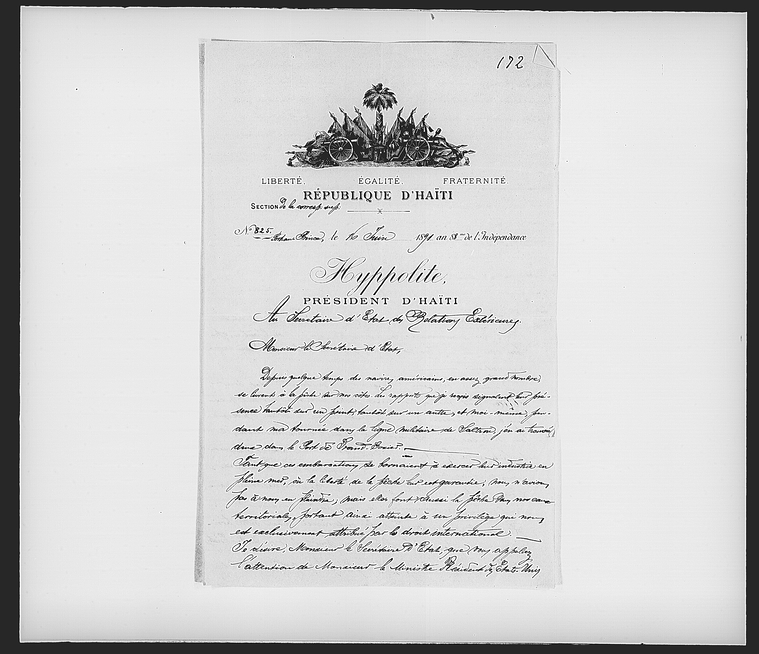 172
LIBERTÉ. ÉGALITÉ. FRATERNITÉ
RÉPUBLIQUE D'HAÏTI
SECTION de la corresp. sup.
Nº 825.
Port-au-Prince, le 16 Juin 1891 an 88me de l'Indépendance
Hyppolite,
PRÉSIDENT D'HAÏTI
Au Secrétaire d'Etat des Relations Extérieures.
Monsieur le Secrétaire d'Etat,
Depuis quelque temps des navires américains, en assez grand nombre,
se livrent à la pêche sur nos côtes. Les rapports que je reçois signalent leur pré-
sence tantôt sur un point, tantôt sur un autre, et moi-même, pen-
dant ma tournée dans la ligne militaire de Saltrou, j'en ai trouvé
deux dans le Port de Grand-Gosier.
Tant que ces embarcations se bornaient à exercer leur industrie en
pleine mer, où la liberté de la pêche leur est garantie, nous n'avions
pas à nous en plaindre, mais elles font aussi la pêche dans nos eaux
territoriales, portant ainsi atteinte à un privilège que nous
est exclusivement attribué par le droit international.
Je désire, Monsieur le Secrétaire d'Etat, que vous appeliez
l'attention de Monsieur le Ministre Résident des Etats-Unis